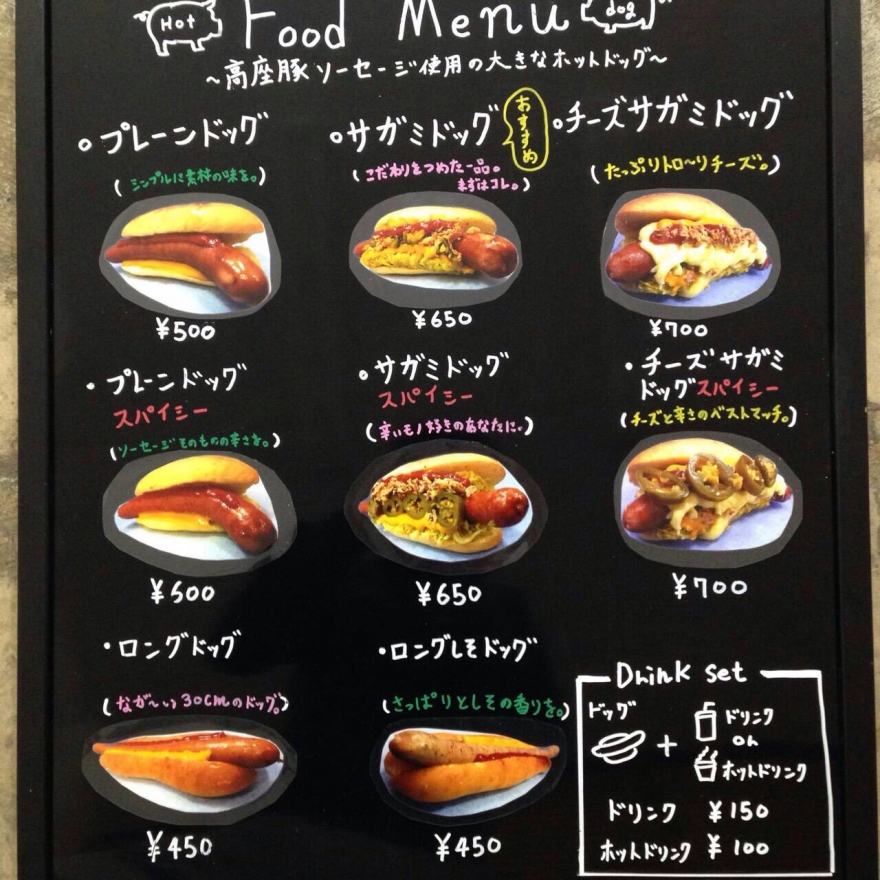 Hot Food Menu dog
~高座豚ソーセージ使用の大きなホットドッグ~
。プレーンドッグ
(シンプルに素材の味を。)
¥500
。サガミドッグ
おすすめ
(こだわりをつめた一品。
まずはコレ。)
¥650
。チーズサガミドッグ
(たっぷりトロ〜りチーズ。)
¥700
・プレーンドッグ
スパイシー
(ソーセージそのものの辛さを。)
¥500
。サガミドッグ
スパイシー
(辛いモノ好きのあなたに。)
¥650
・チーズサガミ
ドッグスパイシー
(チーズと辛さのベストマッチ。)
¥700
・ロングドッグ
(なが〜い30cmのドッグ。)
¥450
・ロングしそドッグ
(さっぱりとしその香りを。)
¥450
Drink set
ドッグ
+
ドリンク
or
ホットドリンク
ドリンク ¥150
ホットドリンク ¥100